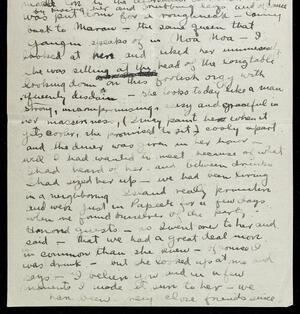 was put down for a roughneck - coming
next to Marau - the same queen that
Gauguin speaks of in Noa Noa - I
looked at her and liked her immensely
she was sitting at the head of the long table
looking down on this foolish orgy with
disdain - she looks today like a man
strong, easy and graceful in
her massiveness, (I may paint her when it
gets cooler, she promised to sit) coolly apart
and the dinner was given in her honor -
well I had wanted to meet because of what
I had heard of her - and between drinks
I had sized her up - we had been living
in a neighboring Island really
and were just in Papeete for a few days
when we found ourselves at the party,
Honored guests - so I went over to her and
said - that we had a great deal more
in common than she knew - of course I
was drunk - but she looked up at me and
says - I believe you and in a few
moments I made it sure to her - we
have been very close friends since